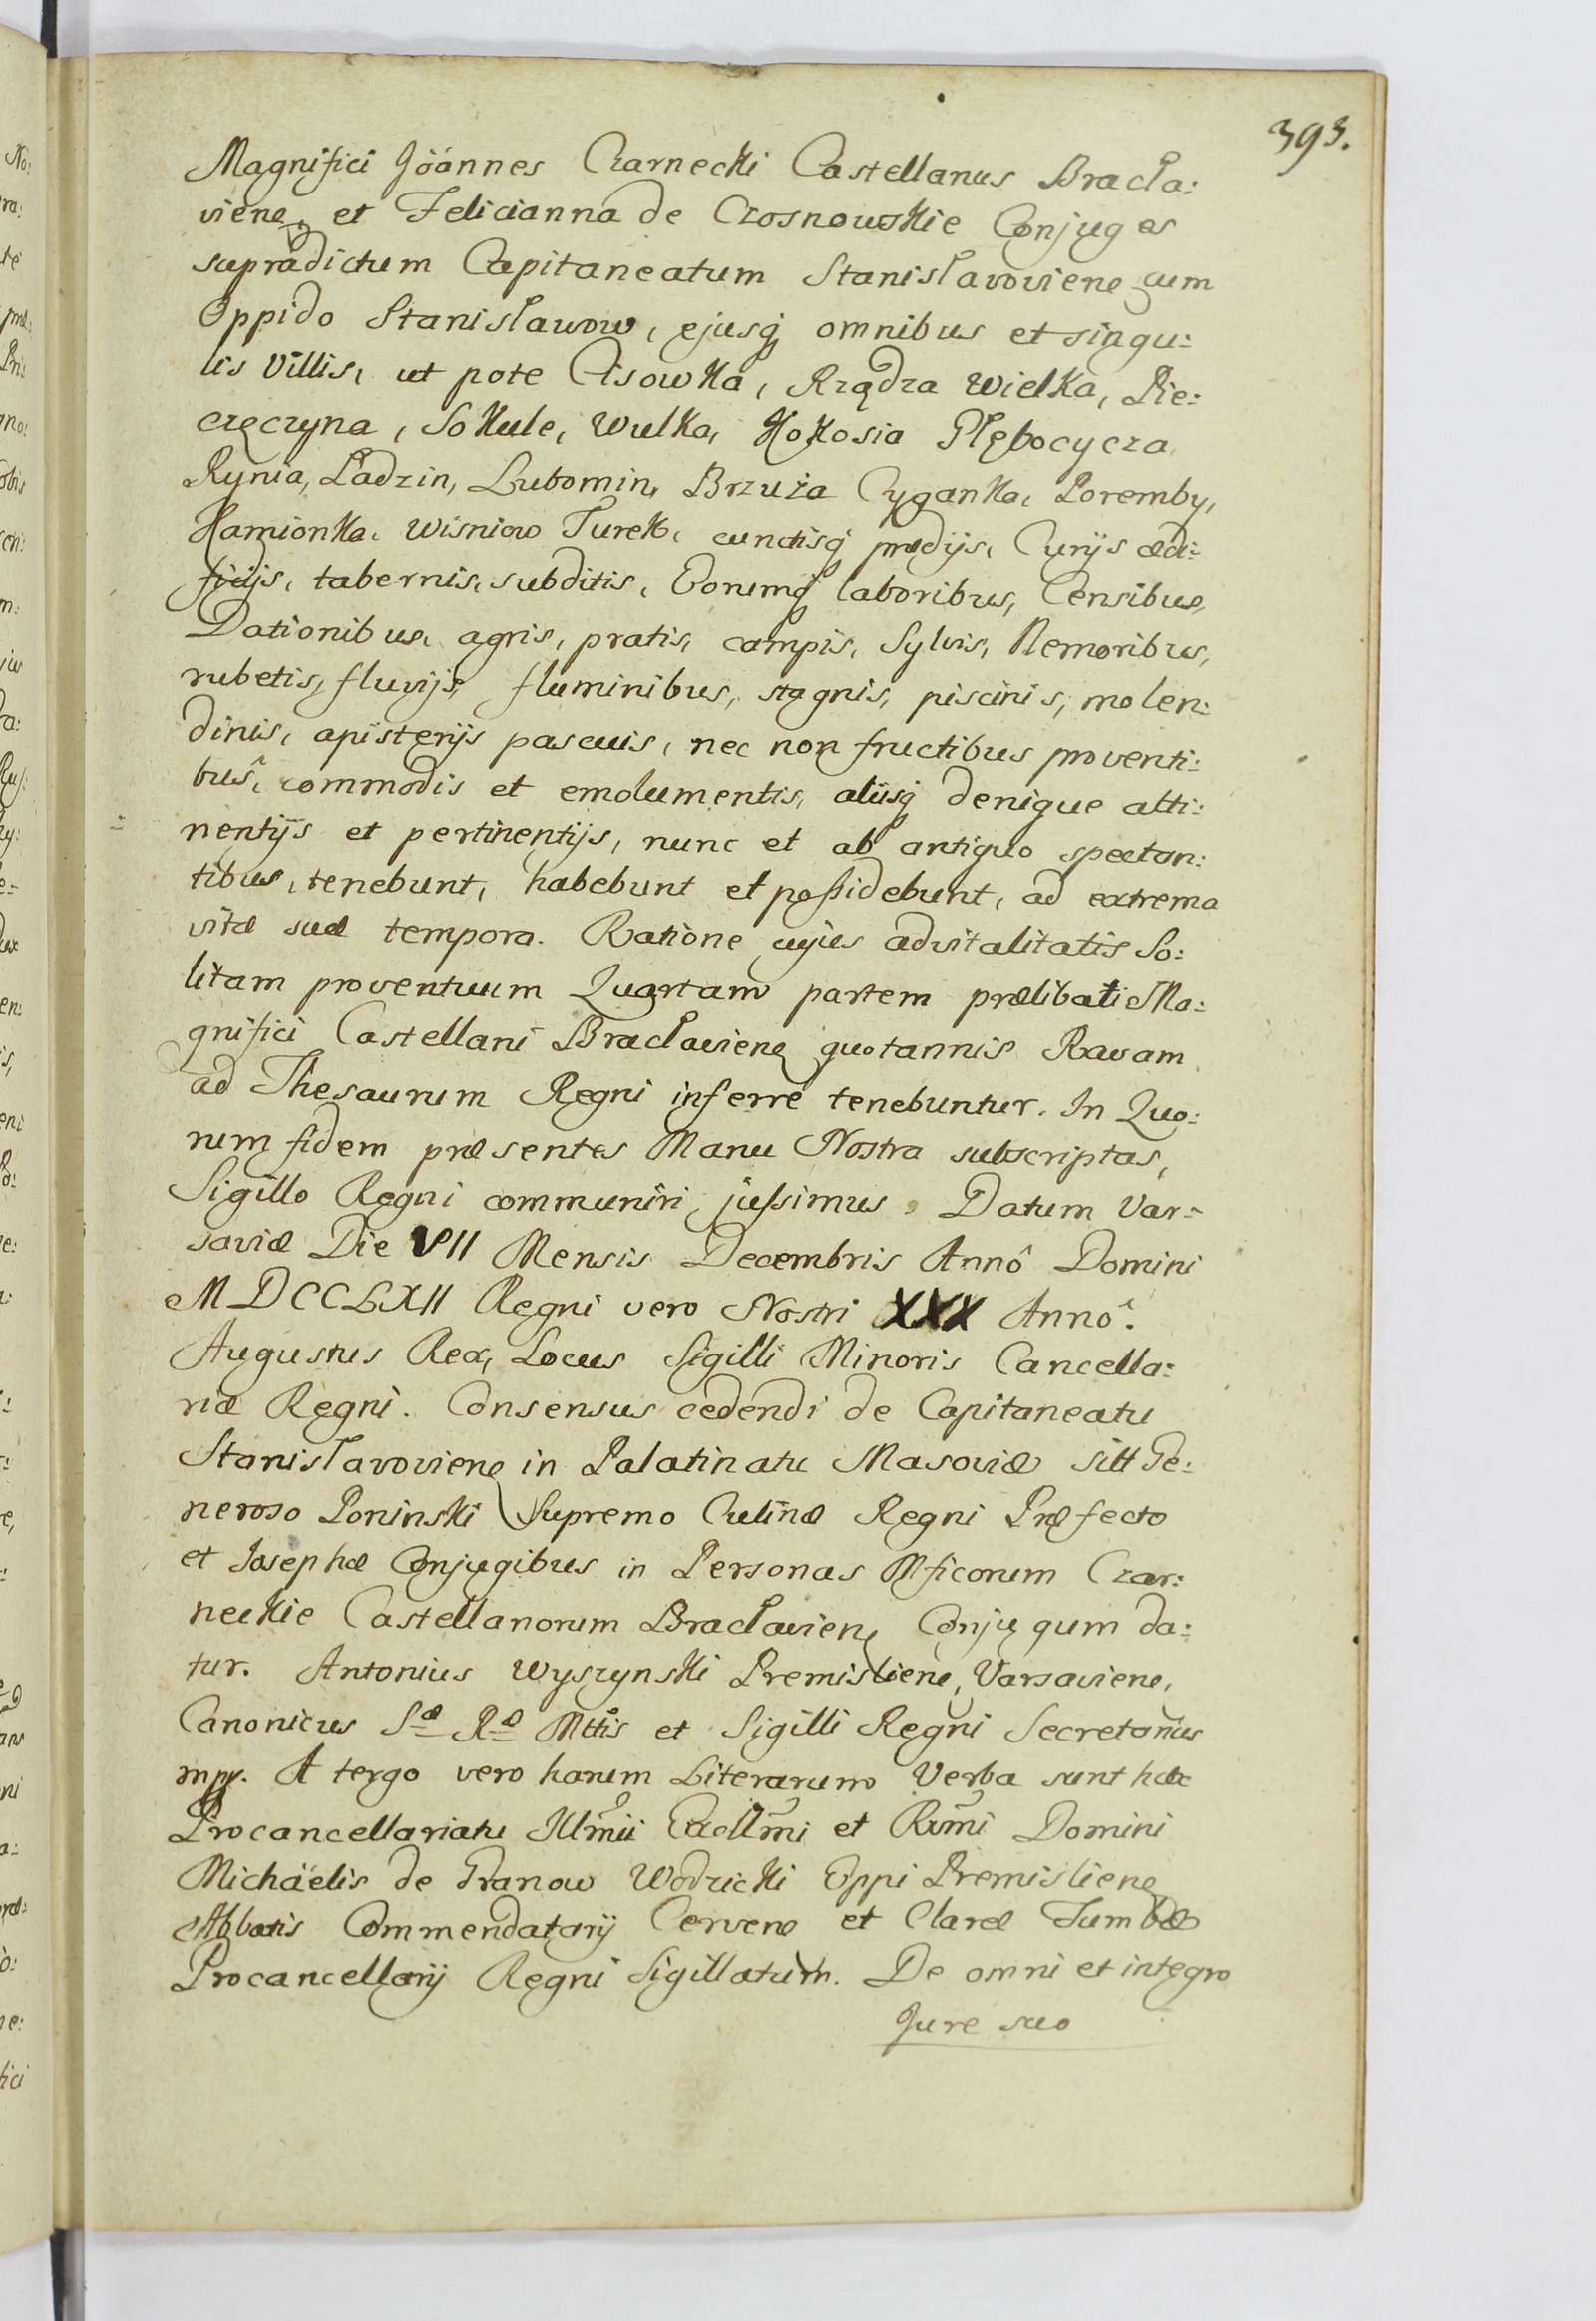 393.
Magnifici Jöánnes Czarnecki Castellanus Bracła:
viene, et Felicianna de Czosnowskie Conjuges
supradictum Capitaneatum Stanisławoviene cum
Oppido Stanisławow, ejusq omnibus et singu:
lis Villis, ut pote Cisowka, Rządza Wielka, Pie:
częczyna, Sokule, Wulka, Kokosia Płębocycza
Rynia, Ładzin, Lubomin, Brzuża Cyganka, Poremby,
Kamionka, Wisniow Turek, cunctisq prædijs, Curijs ædi:
ficijs, tabernis, subditis, Eorumq laboribus, Censibus,
Dationibus, agris, pratis, campis, Sylvis, Nemoribus,
rubetis, fluvijs, fluminibus, stagnis, piscinis, molen:
dinis, apisterijs pascuis, nec non fructibus proventi:
bus, commodis et emolumentis, alijsq denique atti:
nentijs et pertinentijs, nunc et ab antiquo spectan:
tibus, tenebunt, habebunt et possidebunt, ad extrema
vitæ suæ tempora. Ratione cujus advitalitatis So:
litam proventuum Quartam partem prælibati Ma:
gnifici Castellani Bracłaviene quotannis Ravam
ad Thesaurum Regni inferre tenebuntur. In Quo:
rum fidem præsentes Manu Nostra subscriptas,
Sigillo Regni communiri jussimus. Datum Var:
saviæ Die VII Mensis Decembris Annô Domini
MDCCLXII Regni vero Nostri XXX Annô.
Augustus Rex, Locus Sigilli Minoris Cancella:
riæ Regni. Consensus cedendi de Capitaneatu
Stanisławoviene in Palatinatu Masoviæ sitt Ge:
neroso Poninski Supremo Culinæ Regni Præfecto
et Josephæ Conjugibus in Personas Mficorum Czar:
neckie Castellanorum Bracłaviene Conjugum da:
tur. Antonius Wyszynski Premisliene, Varsaviene,
Canonicus Sæ Ræ Mttis et Sigilli Regni Secretarius
mpp. A tergo vero harum Literarum Verba sunt hæc
Procancellariatu Illmii Excellmi et Rvmi Domini
Michäelis de Granow Wodzicki Eppi Premisliene
Abbatis Commendatarij Cervene et Claræ Tumbæ
Procancellarij Regni Sigillatum. De omni et integro
Jure suo